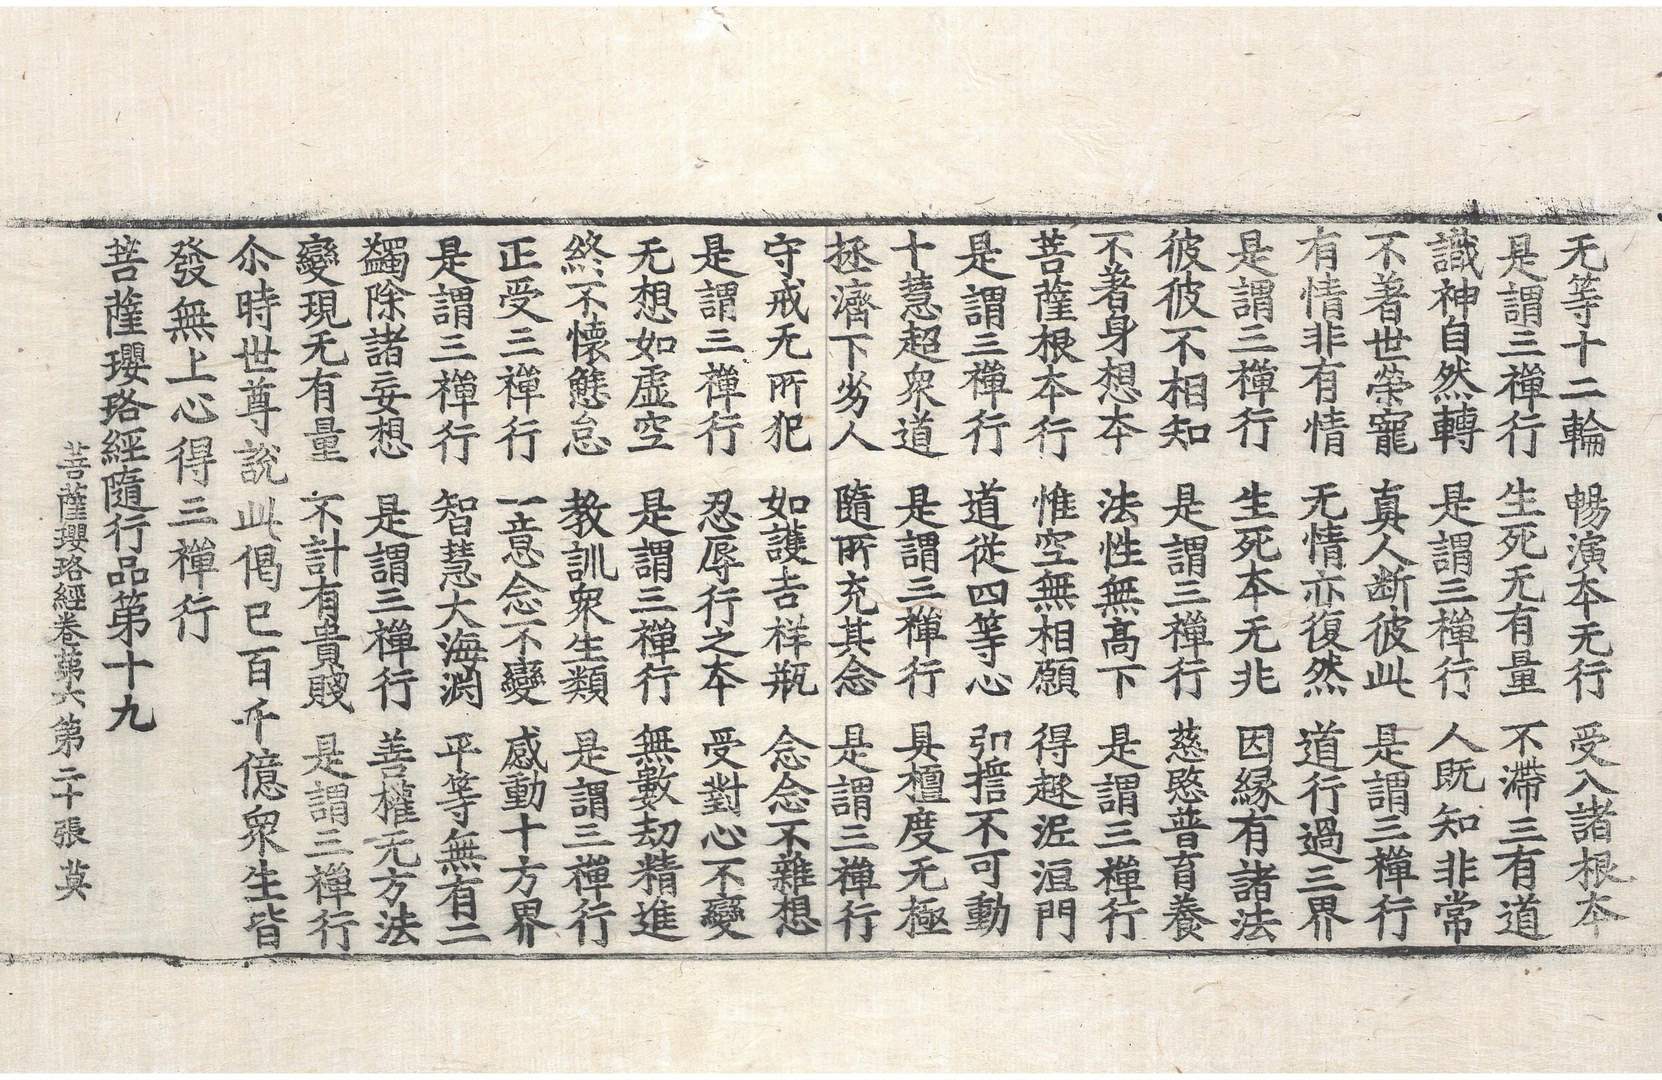 无等十二輪　暢演本无行　受入諸根本
是謂三禪行　生死无有量　不滯三有道
識神自然轉　是謂三禪行　人既知非常
不著世榮寵　真人断彼此　是謂三禪行
有情非有情　无情亦復然　道行過三界
是謂三禪行　生死本无非　因縁有諸法
彼彼不相知　是謂三禪行　慈愍普育養
不著身想本　法性無高下　是謂三禪行
菩薩根本行　惟空無相願　得趣泥洹門
是謂三禪行　道從四等心　弘誓不可動
十慧超衆道　是謂三禪行　具檀度无極
拯濟下劣人　隨所充其念　是謂三禪行
守戒无所犯　如護吉祥瓶　念念不離想
是謂三禪行　忍辱行之本　受對心不變
无想如虛空　是謂三禪行　無數劫精進
終不懷懈怠　教訓衆生類　是謂三禪行
正受三禪行　一意念不變　感動十方界
是謂三禪行　智慧大海渊　平等無有二
蠲除諸妄想　是謂三禪行　善權无方法
變現无有量　不計有貴賤　是謂三禪行
尒時世尊說此偈已百千億衆生皆
發無上心得三禪行
菩薩瓔珞經隨行品第十九
菩薩瓔珞經卷第六　第二十張　莫